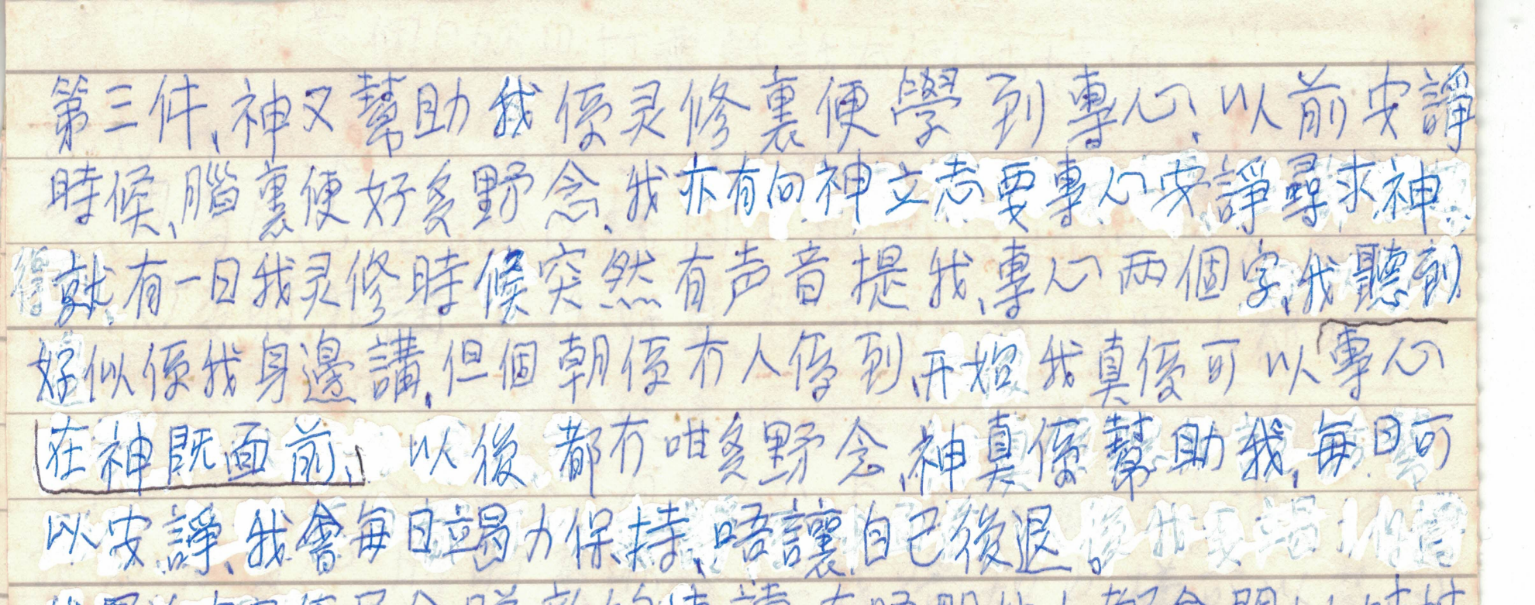 第三件,神又幫助我係灵修裏便學到專心,以前安諍
時候,腦裏便好多野念,我亦有向神立志要專心安諍尋求神,
後就,有一日我灵修時候突然有声音提我,專心两個字,我聽到
好似係我身邊講,但個朝係冇人係到,开始我真係可以專心
在神既面前, 以後都冇咁多野念,神真係幫助我,每日可
以安諍,我會每日竭力保持,唔讓自己後退。